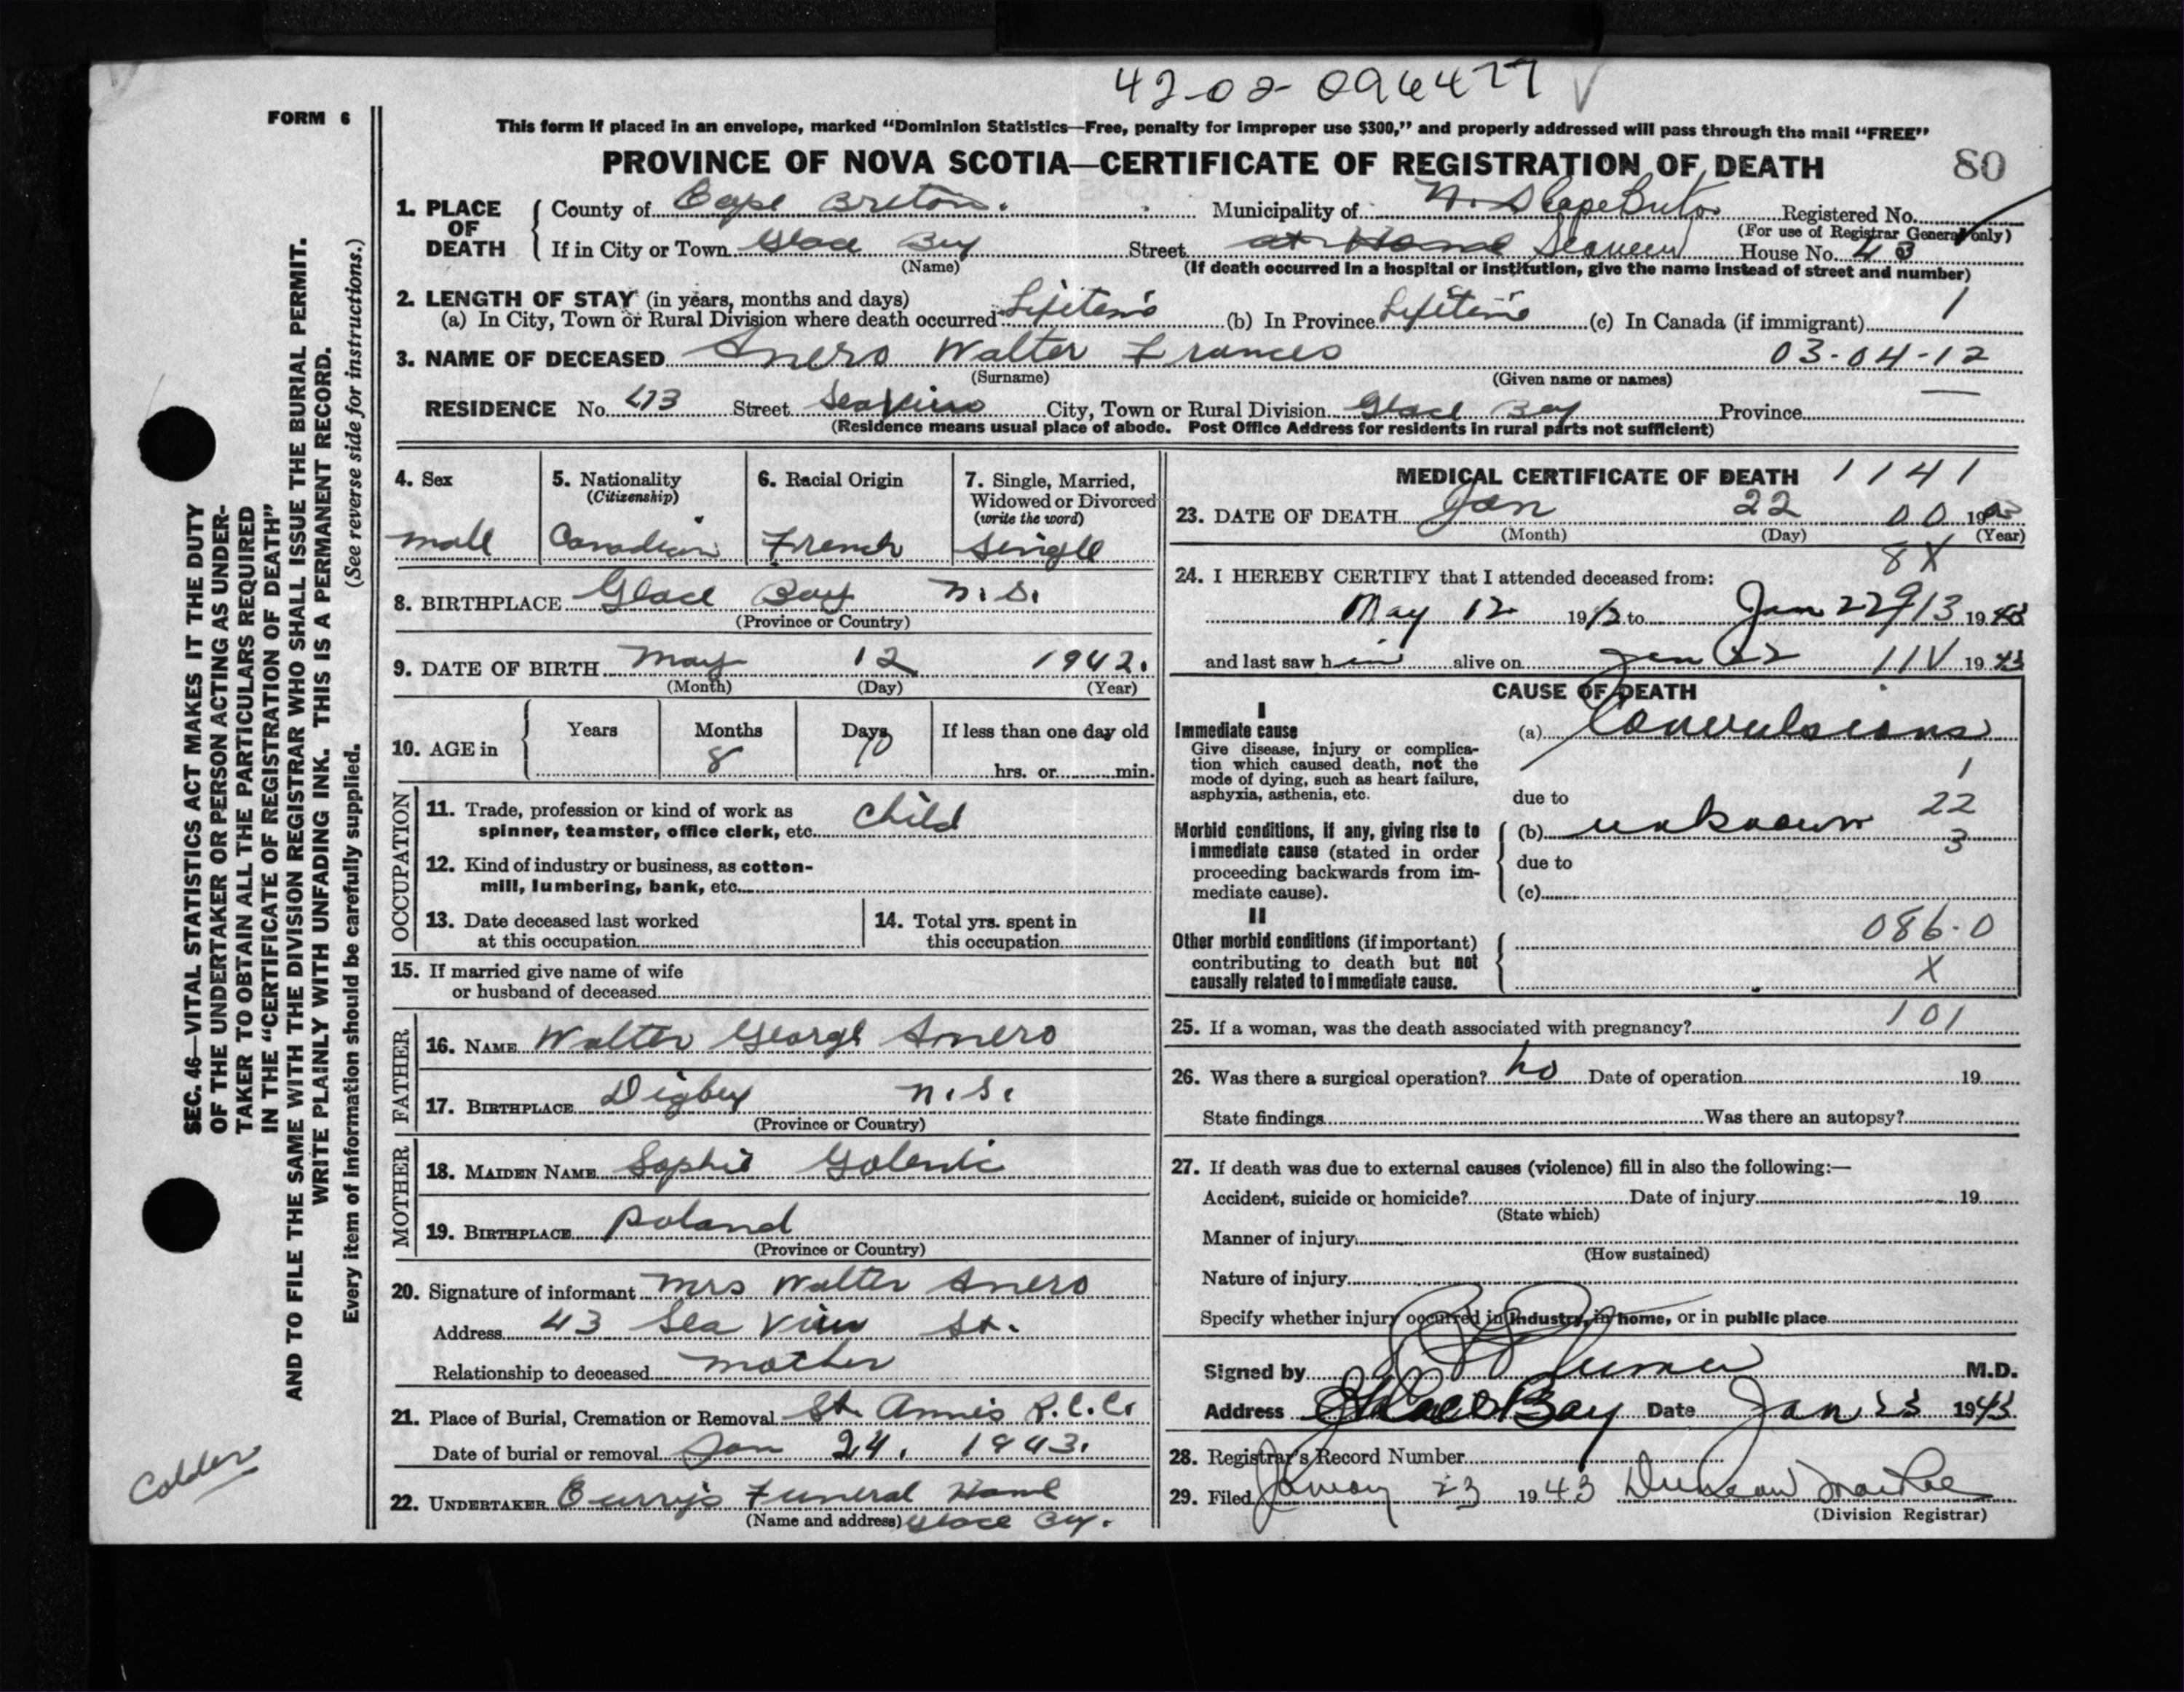 42-02-096477
FORM 6
This form if placed in an envelope, marked “Dominion Statistics—Free, penalty for improper use $300,” and properly addressed will pass through the mail “FREE”
PROVINCE OF NOVA SCOTIA—CERTIFICATE OF REGISTRATION OF DEATH
80
1. PLACE OF DEATH
County of Cape Breton. Municipality of N. S Cape Breton Registered No.
(For use of Registrar General only)
If in City or Town Glace Bay Street at Home Seaview House No. 43
(Name) (If death occurred in a hospital or institution, give the name instead of street and number)
2. LENGTH OF STAY (in years, months and days)
(a) In City, Town or Rural Division where death occurred Lifetime (b) In Province Lifetime (c) In Canada (if immigrant) 1
3. NAME OF DECEASED Amero Walter Frances 03-04-12
(Surname) (Given name or names)
RESIDENCE No. 43 Street Seaview City, Town or Rural Division Glace Bay Province
(Residence means usual place of abode. Post Office Address for residents in rural parts not sufficient)
SEC. 46—VITAL STATISTICS ACT MAKES IT THE DUTY
OF THE UNDERTAKER OR PERSON ACTING AS UNDER-
TAKER TO OBTAIN ALL THE PARTICULARS REQUIRED
IN THE “CERTIFICATE OF REGISTRATION OF DEATH”
AND TO FILE THE SAME WITH THE DIVISION REGISTRAR WHO SHALL ISSUE THE BURIAL PERMIT.
WRITE PLAINLY WITH UNFADING INK. THIS IS A PERMANENT RECORD.
Every item of information should be carefully supplied. (See reverse side for instructions.)
4. Sex
male
5. Nationality
(Citizenship)
Canadian
6. Racial Origin
French
7. Single, Married,
Widowed or Divorced
(write the word)
Single
8. BIRTHPLACE Glace Bay N.S.
(Province or Country)
9. DATE OF BIRTH May 12 1942.
(Month) (Day) (Year)
10. AGE in
Years Months Days If less than one day old
8 10 hrs. or min.
OCCUPATION
11. Trade, profession or kind of work as
spinner, teamster, office clerk, etc. Child
12. Kind of industry or business, as cotton-
mill, lumbering, bank, etc.
13. Date deceased last worked
at this occupation
14. Total yrs. spent in
this occupation
15. If married give name of wife
or husband of deceased
FATHER
16. NAME Walter George Amero
17. BIRTHPLACE Digby N.S.
(Province or Country)
MOTHER
18. MAIDEN NAME Sophie
19. BIRTHPLACE Poland
(Province or Country)
20. Signature of informant Mrs Walter Amero
Address 43 Sea View St.
Relationship to deceased mother
21. Place of Burial, Cremation or Removal St. Anne's R.C.C.
Date of burial or removal Jan 24. 1943.
22. UNDERTAKER Curry's Funeral Home
(Name and address) Glace Bay.
MEDICAL CERTIFICATE OF DEATH 1141
23. DATE OF DEATH Jan 22 00 19
(Month) (Day) (Year)
8X
24. I HEREBY CERTIFY that I attended deceased from:
May 12 1942 to Jan 22 913 1943
and last saw him alive on Jan 22 11V 1943
CAUSE OF DEATH
I
Immediate cause
Give disease, injury or complica-
tion which caused death, not the
mode of dying, such as heart failure,
asphyxia, asthenia, etc.
(a) Convulsions
1
due to
22
Morbid conditions, if any, giving rise to
immediate cause (stated in order
proceeding backwards from im-
mediate cause).
(b) unknown
3
due to
(c)
II
Other morbid conditions (if important)
contributing to death but not
causally related to immediate cause.
086.0
X
25. If a woman, was the death associated with pregnancy? 101
26. Was there a surgical operation? no Date of operation 19
State findings Was there an autopsy?
27. If death was due to external causes (violence) fill in also the following:—
Accident, suicide or homicide? Date of injury 19
(State which)
Manner of injury
(How sustained)
Nature of injury
Specify whether injury occurred in industry, in home, or in public place
Signed by M.D.
Address Glace Bay Date Jan 23 1943
28. Registrar's Record Number
29. Filed January 23 1943 Duncan MacRae
(Division Registrar)
Calder